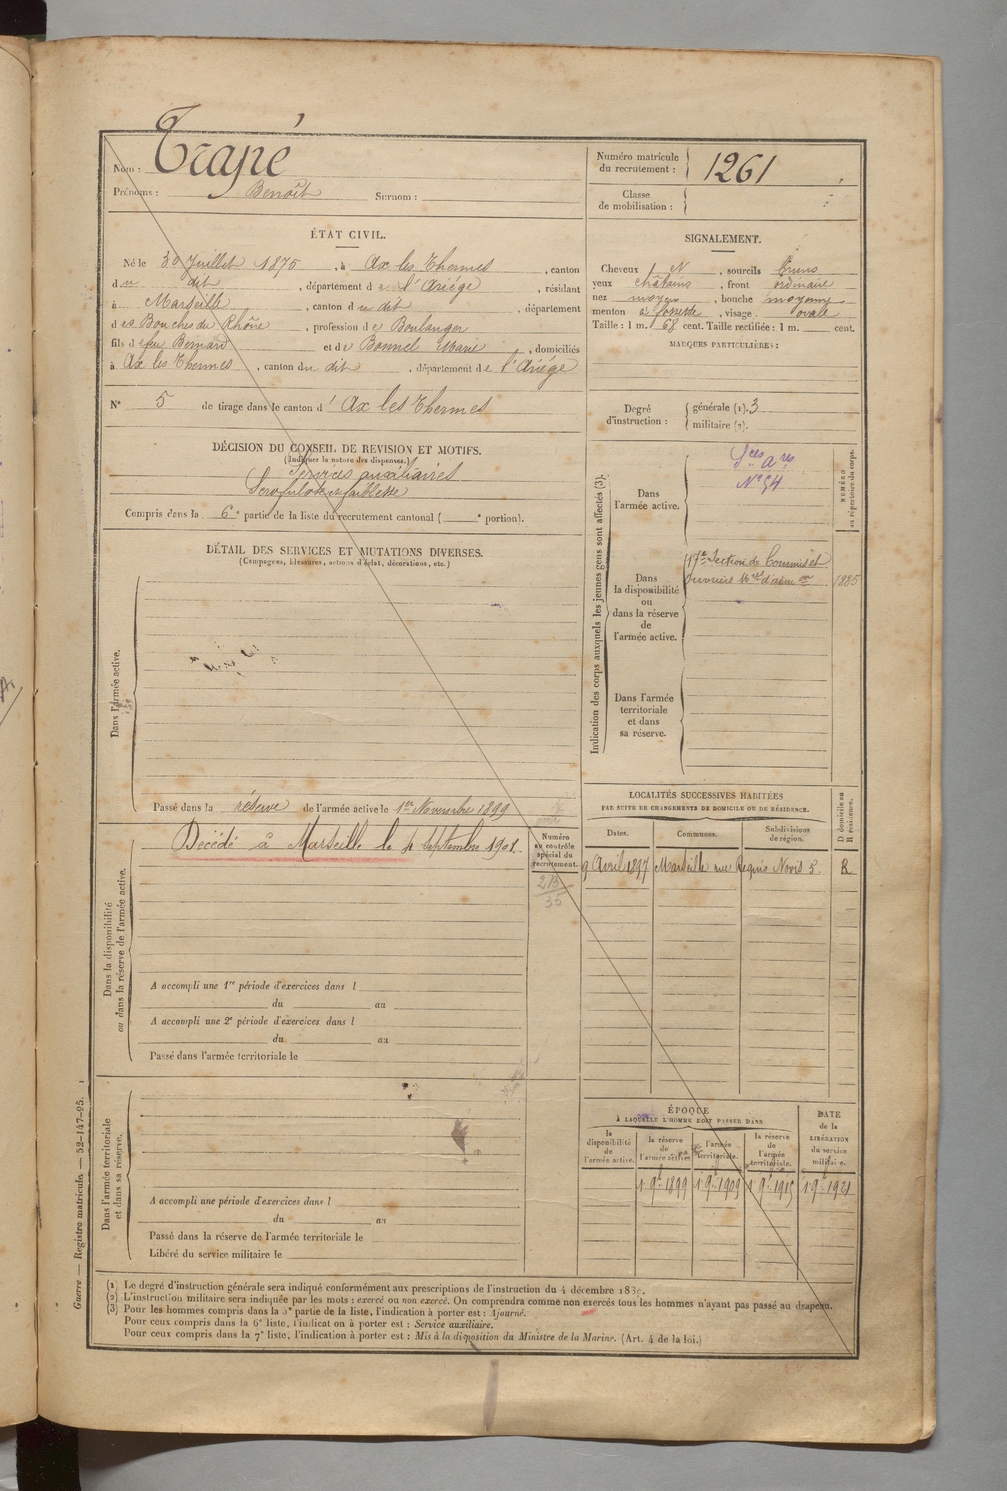 Nom : Trapé
Prénoms : Benoît Surnom :
Numéro matricule du recrutement : 1261
Classe de mobilisation :
ÉTAT CIVIL.
Né le 30 Juillet 1875, à Ax les Thermes, canton
du dit, département de l'Ariége, résidant
à Marseille, canton du dit, département
des Bouches du Rhône, profession de Boulanger
fils de feu Bernard et de Bonnel Marie, domiciliés
à Ax les Thermes, canton du dit, département de l'Ariége
N° 5 de tirage dans le canton d' Ax les Thermes
SIGNALEMENT.
Cheveux N, sourcils bruns
yeux châtains, front ordinaire
nez moyen, bouche moyenne
menton à fossette, visage ovale
Taille : 1 m. 68 cent. Taille rectifiée : 1 m. cent.
MARQUES PARTICULIÈRES :
Degré d'instruction : générale (1). 3
militaire (2).
DÉCISION DU CONSEIL DE REVISION ET MOTIFS.
(Indiquer la nature des dispenses.)
Services auxiliaires
faiblesse
Compris dans la 6e partie de la liste du recrutement cantonal ( e portion).
DÉTAIL DES SERVICES ET MUTATIONS DIVERSES.
(Campagnes, blessures, actions d'éclat, décorations, etc.)
Dans l'armée active.
Passé dans la réserve de l'armée active le 1er Novembre 1899
Indication des corps auxquels les jeunes gens sont affectés (3).
NUMÉRO au répertoire du corps.
Dans l'armée active.
Sces Ares
N° 54
Dans la disponibilité ou dans la réserve de l'armée active.
17e Section de Commis et
ouvriers Mres d'adm on 1885
Dans l'armée territoriale et dans sa réserve.
Dans la disponibilité ou dans la réserve de l'armée active.
Décédé à Marseille le 4 Septembre 1901.
Numéro au contrôle spécial du recrutement.
215
35
A accompli une 1re période d'exercices dans l
du au
A accompli une 2e période d'exercices dans l
du au
Passé dans l'armée territoriale le
LOCALITÉS SUCCESSIVES HABITÉES
PAR SUITE DE CHANGEMENTS DE DOMICILE OU DE RÉSIDENCE.
D domicile ou R résidence.
Dates. Communes. Subdivisions de région.
9 Avril 1897 Marseille rue Requis Novis 5. R
Dans l'armée territoriale et dans sa réserve.
A accompli une période d'exercices dans l
du au
Passé dans la réserve de l'armée territoriale le
Libéré du service militaire le
ÉPOQUE
À LAQUELLE L'HOMME DOIT PASSER DANS
DATE de la LIBÉRATION du service militaire.
la disponibilité de l'armée active. la réserve de l'armée active. l'armée territoriale. la réserve de l'armée territoriale.
1 9e 1899 1 9e 1909 1 9e 1915 1 9e 1921
(1) Le degré d'instruction générale sera indiqué conformément aux prescriptions de l'instruction du 4 décembre 1889.
(2) L'instruction militaire sera indiquée par les mots : exercé ou non exercé. On comprendra comme non exercés tous les hommes n'ayant pas passé au drapeau.
(3) Pour les hommes compris dans la 5e partie de la liste, l'indication à porter est : Ajourné.
Pour ceux compris dans la 6e liste, l'indication à porter est : Service auxiliaire.
Pour ceux compris dans la 7e liste, l'indication à porter est : Mis à la disposition du Ministre de la Marine. (Art. 4 de la loi.)
Guerre — Registre matricule. — 52-147-95.